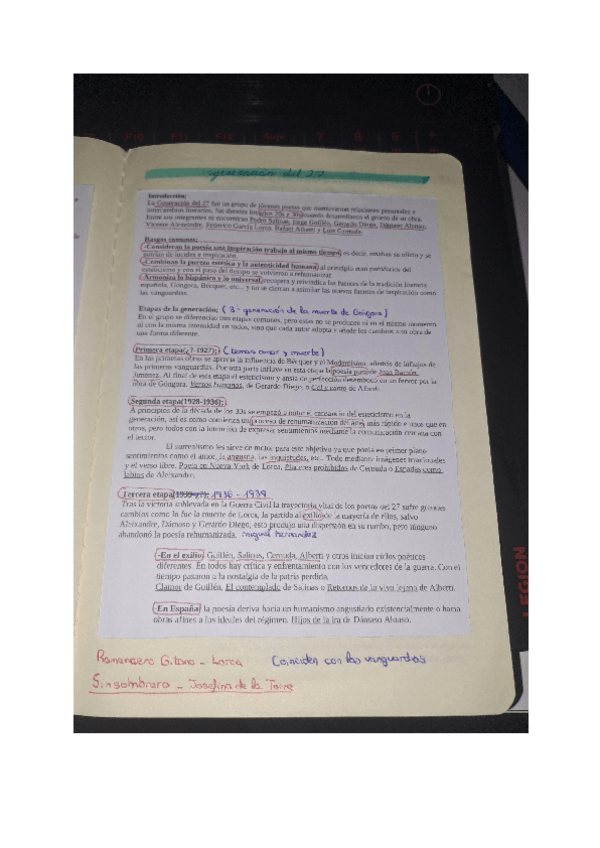 F10 F11 F12 7 8 9
generación del 27
Introducción:
La Generación del 27 fue un grupo de jóvenes poetas que mantuvieron relaciones personales e
intercambios literarios, fue durante los años 20s y 30s cuando desarrollaron el grueso de su obra.
Entre sus integrantes se encuentran Pedro Salinas, Jorge Guillén, Gerardo Diego, Dámaso Alonso,
Vicente Aleixandre, Federico García Lorca, Rafael Alberti y Luis Cernuda.
Rasgos comunes:
-Consideran la poesía una inspiración trabajo al mismo tiempo, es decir, estaban su oficio y se
partían de lucidez e inspiración.
-Combinan la pureza estética y la autenticidad humana, al principio más partidarios del
esteticismo y con el paso del tiempo se volvieron a rehumanizar.
-Armoniza lo hispánico y lo universal, recupera y reivindica las fuentes de la tradición literaria
española, Góngora, Bécquer, etc... y no se cierran a asimilar las nuevas fuentes de inspiración como
las vanguardias.
Etapas de la generación: (3ª generación de la muerte de Góngora)
En el grupo se diferencian tres etapas comunes, pero estas no se producen ni en el mismo momento
ni con la misma intensidad en todos, sino que cada autor adopta y añade los cambios a su obra de
una forma diferente.
Primera etapa(¿?-1927): (temas amor y muerte)
En las primeras obras se aprecia la influencia de Bécquer y el Modernismo, además de influjos de
las primeras vanguardias. Por otra parte influye en esta etapa la poesía pura de Juan Ramón
Jiménez. Al final de esta etapa el esteticismo y ansia de perfección desembocó en un fervor por la
obra de Góngora. Versos humanos, de Gerardo Diego, o Cal y canto de Alberti.
Segunda etapa(1928-1936):
A principios de la década de los 30s se empezó a notar el cansancio del esteticismo en la
generación, así es como comienza un proceso de rehumanización del arte, más rápido e unos que en
otros, pero todos con la intención de expresar sentimientos mediante la comunicación cercana con
el lector.
El surrealismo les sirve de motor para este objetivo ya que ponía en primer plano
sentimientos como el amor, la angustia, las inquietudes, etc.. Todo mediante imágenes irracionales
y el verso libre. Poeta en Nueva York de Lorca, Placeres prohibidos de Cernuda o Espadas como
labios de Aleixandre.
Tercera etapa 1936 - 1939
Tras la victoria sublevada en la Guerra Civil la trayectoria vital de los poetas del 27 sufre grandes
cambios como lo fue la muerte de Lorca, la partida al exilio de la mayoría de ellos, salvo
Aleixandre, Dámaso y Gerardo Diego, esto produjo una dispersión en su rumbo, pero ninguno
abandonó la poesía rehumanizada. miguel hernandez
-En el exilio: Guillén, Salinas, Cernuda, Alberti y otros inician ciclos poéticos
diferentes. En todos hay crítica y enfrentamiento con los vencedores de la guerra. Con el
tiempo pasaron a la nostalgia de la patria perdida.
Clamor de Guillén, El contemplado de Salinas o Retornos de lo vivo lejano de Alberti.
-En España: la poesía deriva hacia un humanismo angustiado existencialmente o hacia
obras afines a los ideales del régimen. Hijos de la ira de Dámaso Alonso.
Romancero Gitano - Lorca Coinciden con las vanguardias
Sinsombrero - Josefina de la Torre
LEGION